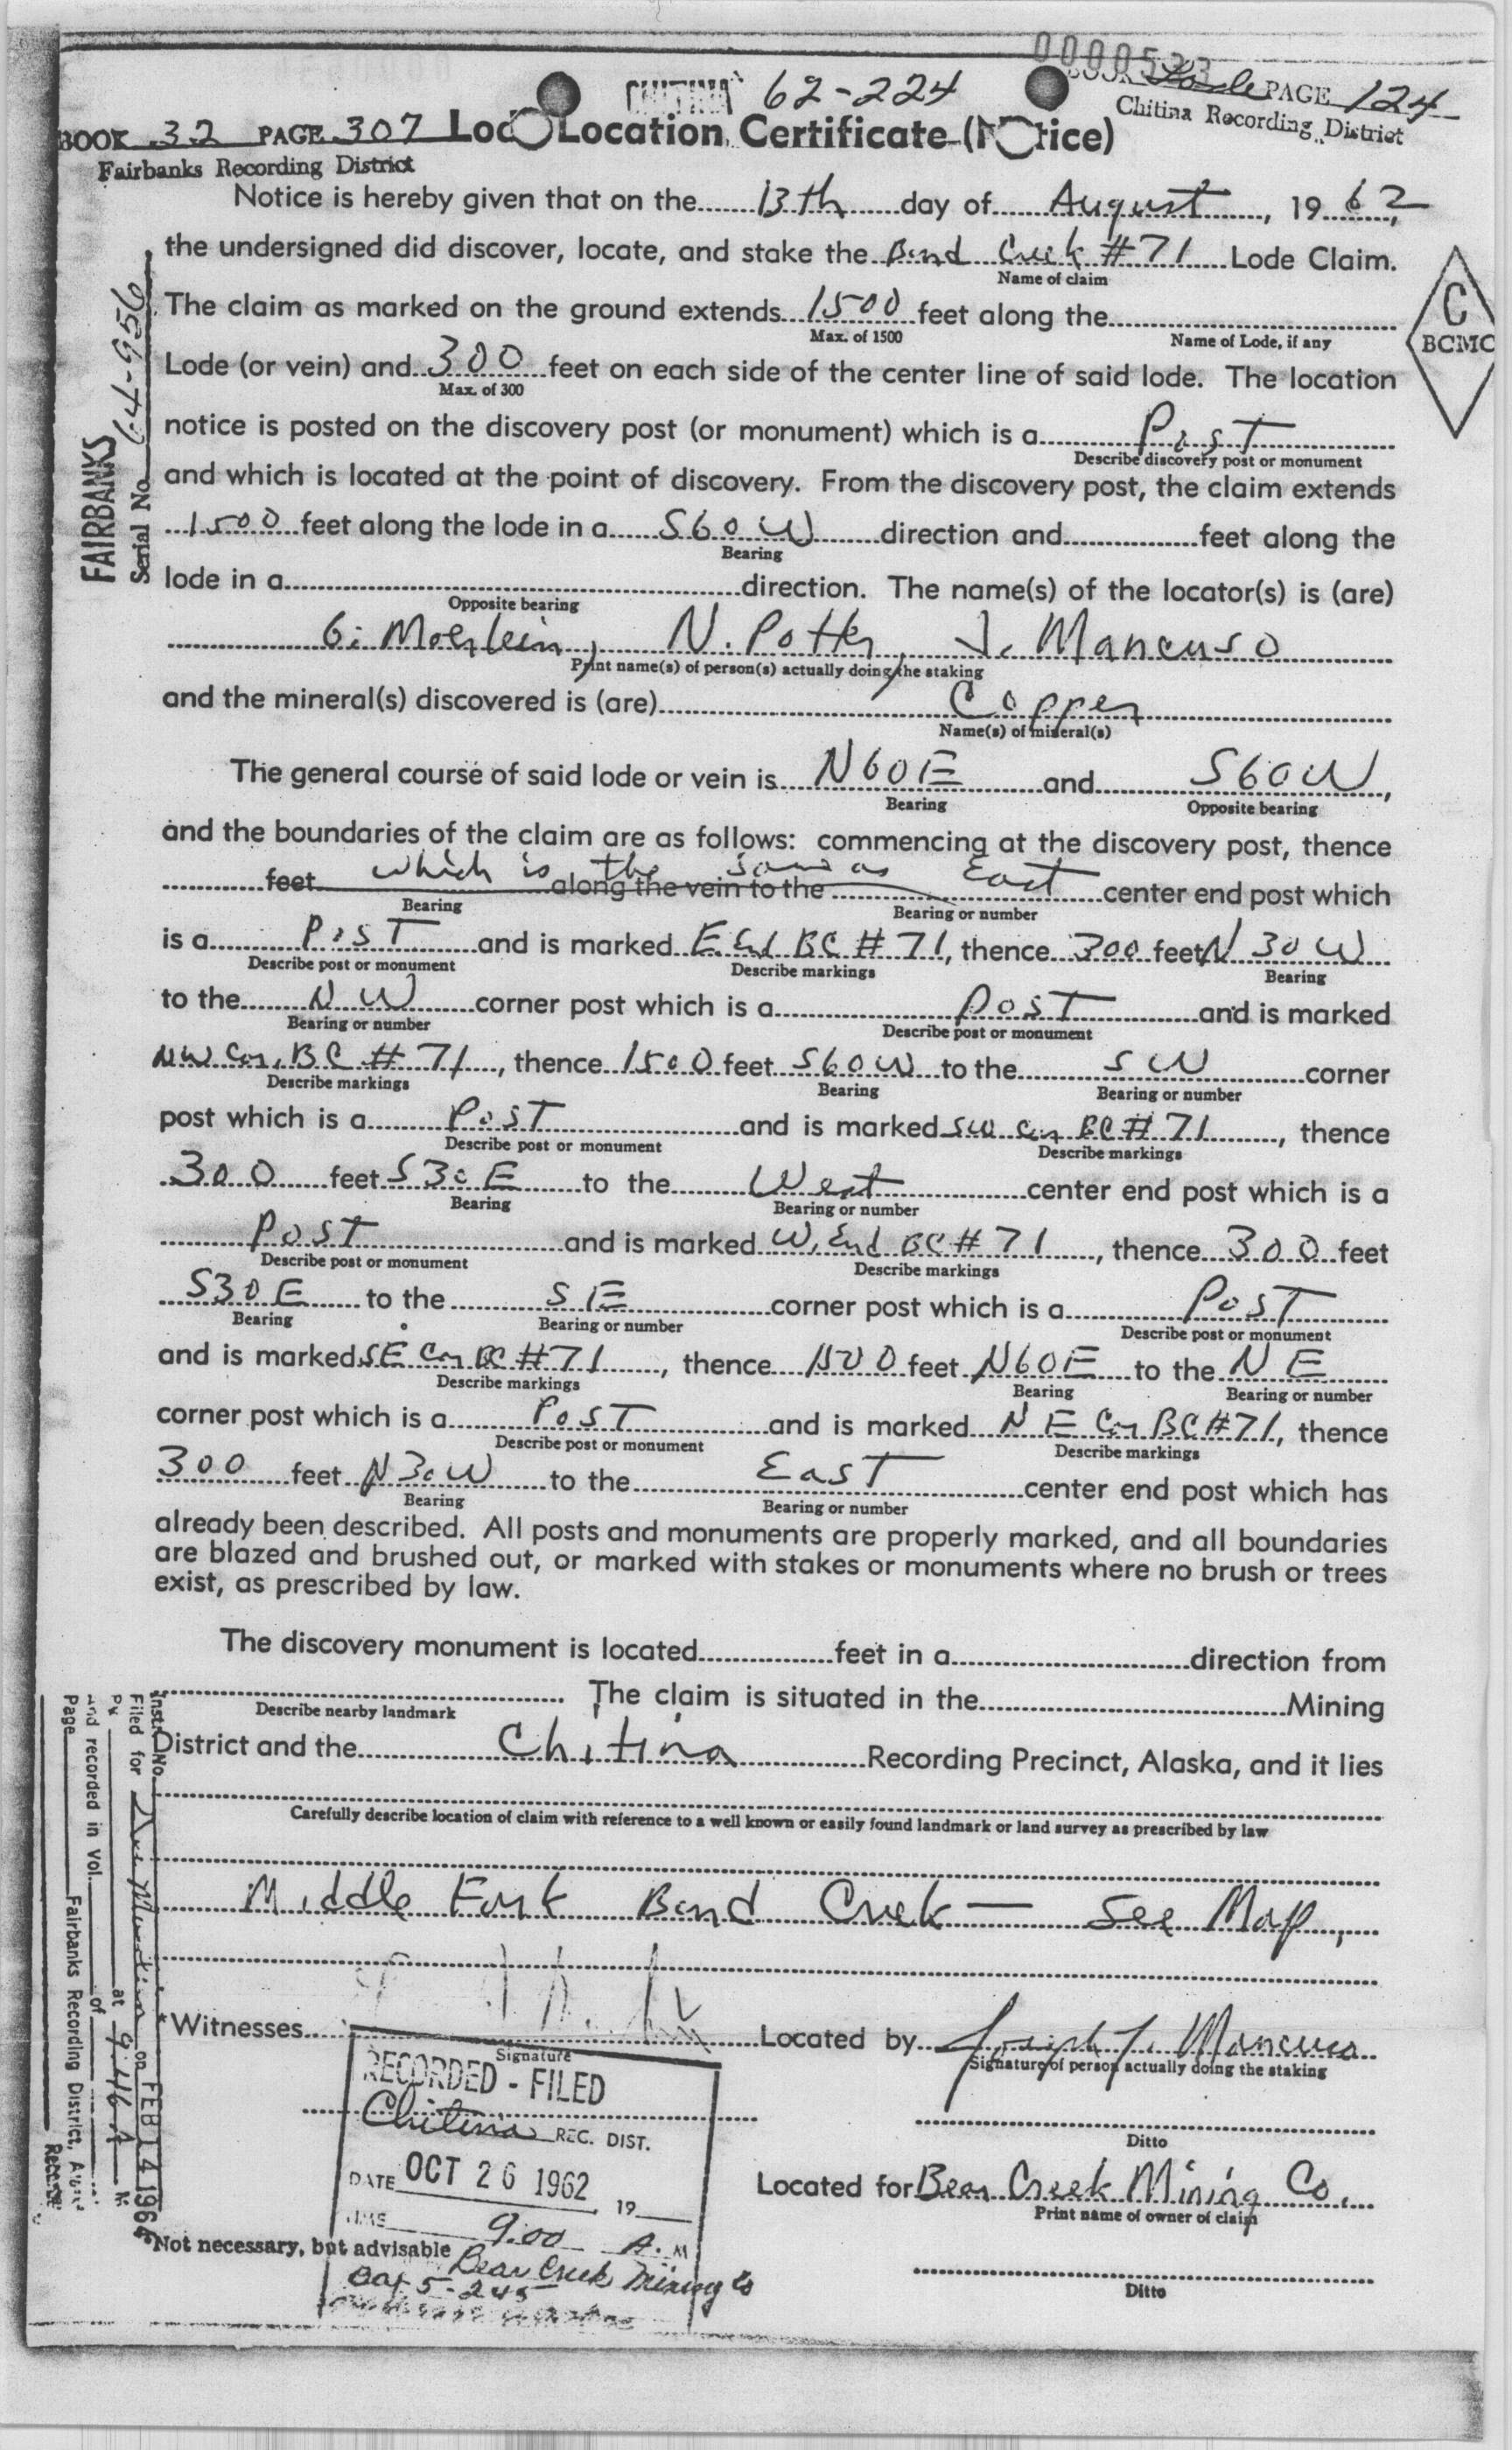 0000533
CHITINA 62-224
BOOK Lode PAGE 124
Chitina Recording District
BOOK 32 PAGE 307 Location Certificate (Notice)
Fairbanks Recording District
Notice is hereby given that on the 13th day of August, 1962,
the undersigned did discover, locate, and stake the Bond Creek #71 Lode Claim.
Name of claim
The claim as marked on the ground extends 1500 feet along the
Max. of 1500 Name of Lode, if any
C
BCMC
Lode (or vein) and 300 feet on each side of the center line of said lode. The location
Max. of 300
notice is posted on the discovery post (or monument) which is a Post
Describe discovery post or monument
and which is located at the point of discovery. From the discovery post, the claim extends
1500 feet along the lode in a S60W direction and feet along the
Bearing
lode in a direction. The name(s) of the locator(s) is (are)
Opposite bearing
G. Moerlein, N. Potter, J. Mancuso
Print name(s) of person(s) actually doing the staking
and the mineral(s) discovered is (are) Copper
Name(s) of mineral(s)
The general course of said lode or vein is N60E and S60W,
Bearing Opposite bearing
and the boundaries of the claim are as follows: commencing at the discovery post, thence
which is the same as East
feet along the vein to the center end post which
Bearing Bearing or number
is a Post and is marked E. End BC #71, thence 300 feet N 30 W
Describe post or monument Describe markings Bearing
to the NW corner post which is a Post and is marked
Bearing or number Describe post or monument
NW Cor. BC #71, thence 1500 feet S60W to the SW corner
Describe markings Bearing Bearing or number
post which is a Post and is marked SW Cor BC #71, thence
Describe post or monument Describe markings
300 feet S30E to the West center end post which is a
Bearing Bearing or number
Post and is marked W. End BC #71, thence 300 feet
Describe post or monument Describe markings
S30E to the SE corner post which is a Post
Bearing Bearing or number Describe post or monument
and is marked SE Cor BC #71, thence 1500 feet N60E to the NE
Describe markings Bearing Bearing or number
corner post which is a Post and is marked NE Cor BC #71, thence
Describe post or monument Describe markings
300 feet N30W to the East center end post which has
Bearing Bearing or number
already been described. All posts and monuments are properly marked, and all boundaries
are blazed and brushed out, or marked with stakes or monuments where no brush or trees
exist, as prescribed by law.
The discovery monument is located feet in a direction from
The claim is situated in the Mining
Describe nearby landmark
District and the Chitina Recording Precinct, Alaska, and it lies
Carefully describe location of claim with reference to a well known or easily found landmark or land survey as prescribed by law
Middle Fork Bond Creek — See Map,
*Witnesses Located by Joseph J. Mancuso
Signature Signature of person actually doing the staking
RECORDED - FILED
Chitina REC. DIST.
Ditto
DATE OCT 26 1962 19
Located for Bear Creek Mining Co.
Print name of owner of claim
TIME 9:00 A. M
*Not necessary, but advisable
Bear Creek Mining Co
Box 5-245
Ditto
FAIRBANKS
Serial No. 64-956
Instr. No.
Filed for on FEB 14 1964
at 9:46 A M
and recorded in Vol. of
Page Fairbanks Recording District,